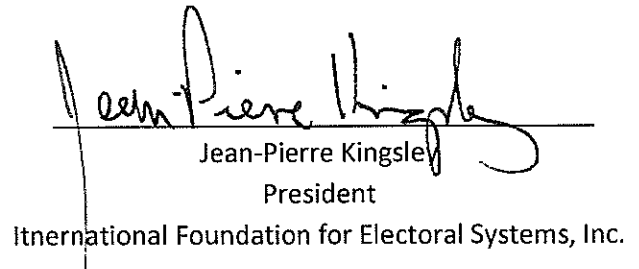 Jean Pierre Kingsley
Jean-Pierre Kingsley
President
Itnernational Foundation for Electoral Systems, Inc.